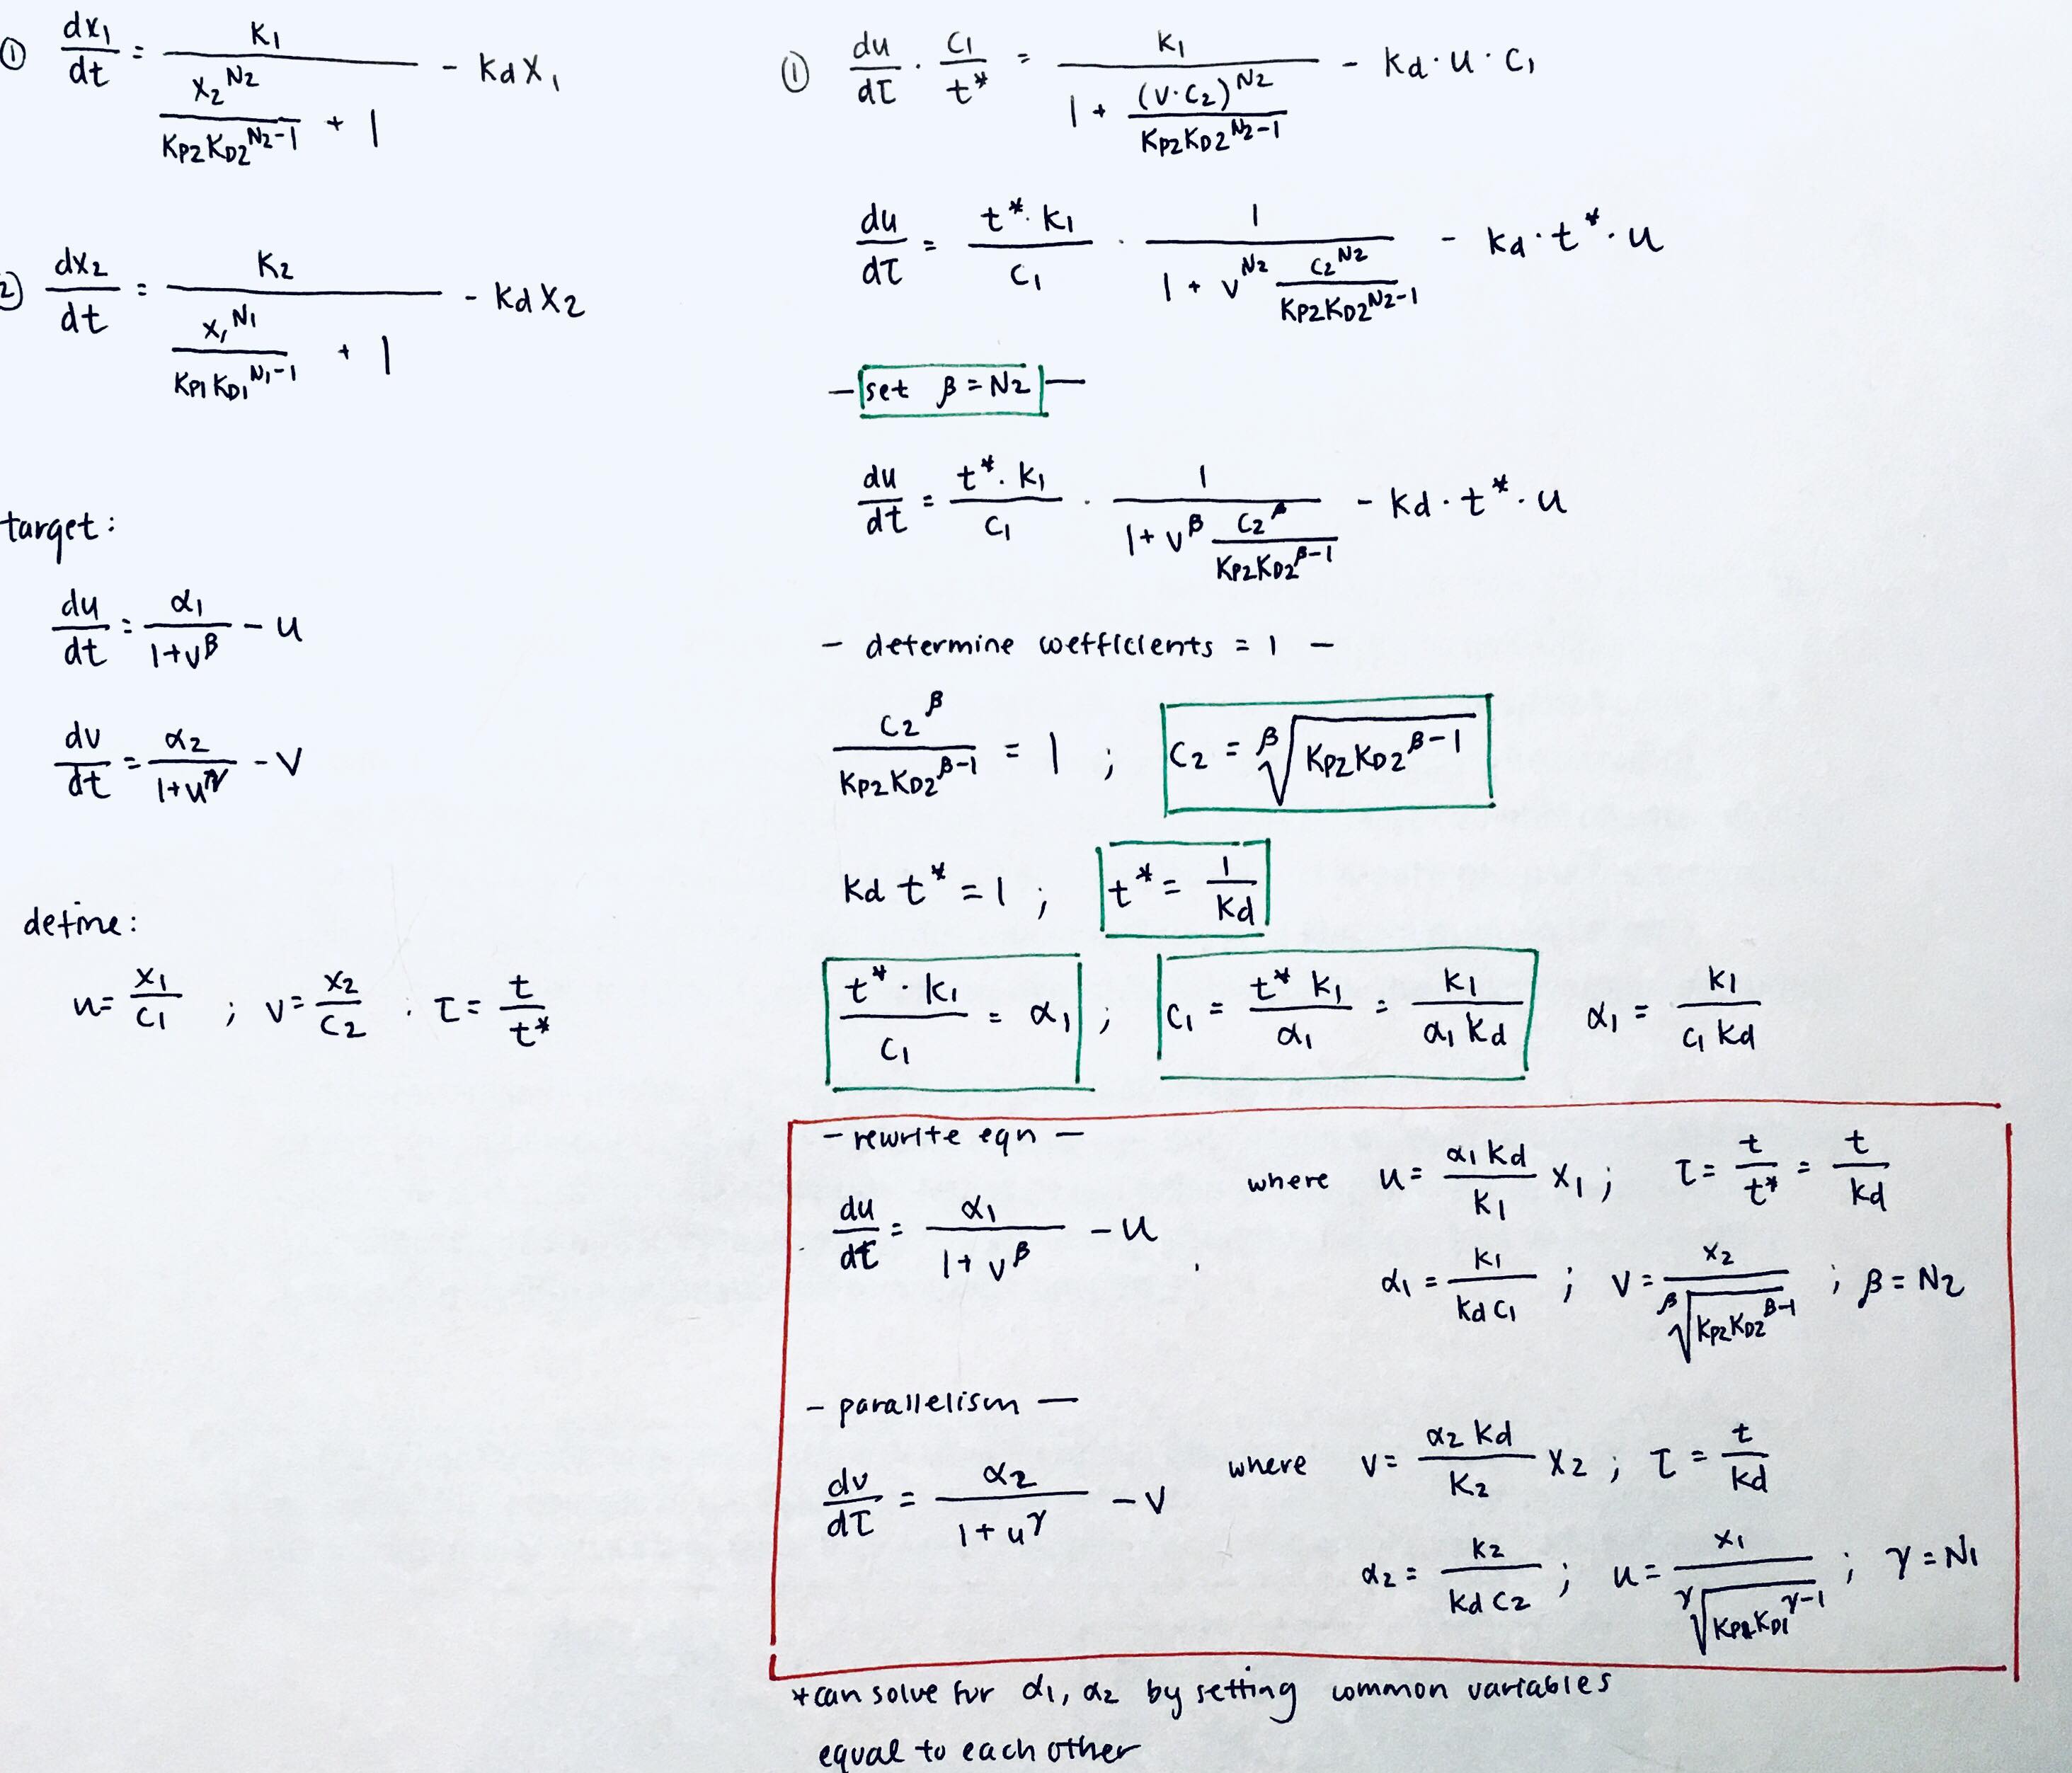 ① dx₁/dt = K₁ / (x₂^N₂ / (K_P2 K_D2^(N₂-1)) + 1) - Kd X₁
② dx₂/dt = K₂ / (x₁^N₁ / (K_P1 K_D1^(N₁-1)) + 1) - Kd X₂
target:
du/dt = α₁ / (1+v^β) - u
dv/dt = α₂ / (1+u^γ) - v
define:
u = x₁/c₁ ; v = x₂/c₂ ; τ = t/t*
① du/dτ · c₁/t* = K₁ / (1 + (v·c₂)^N₂ / (K_P2 K_D2^(N₂-1))) - Kd·u·c₁
du/dτ = t*·K₁ / c₁ · 1 / (1 + v^N₂ c₂^N₂ / (K_P2 K_D2^(N₂-1))) - Kd·t*·u
- set β = N₂ -
du/dt = t*·K₁ / c₁ · 1 / (1 + v^β c₂^β / (K_P2 K_D2^(β-1))) - Kd·t*·u
- determine coefficients = 1 -
c₂^β / (K_P2 K_D2^(β-1)) = 1 ; c₂ = β√(K_P2 K_D2^(β-1))
Kd t* = 1 ; t* = 1/Kd
t*·K₁ / c₁ = α₁ ; c₁ = t* K₁ / α₁ = K₁ / (α₁ Kd) α₁ = K₁ / (c₁ Kd)
- rewrite eqn -
du/dτ = α₁ / (1 + v^β) - u , where u = (α₁ Kd / K₁) X₁ ; τ = t/t* = t/Kd
α₁ = K₁ / (Kd c₁) ; v = x₂ / β√(K_P2 K_D2^(β-1)) ; β = N₂
- parallelism -
dv/dτ = α₂ / (1 + u^γ) - v where v = (α₂ Kd / K₂) X₂ ; τ = t/Kd
α₂ = K₂ / (Kd c₂) ; u = x₁ / γ√(K_P1 K_D1^(γ-1)) ; γ = N₁
*can solve for α₁, α₂ by setting common variables
equal to each other